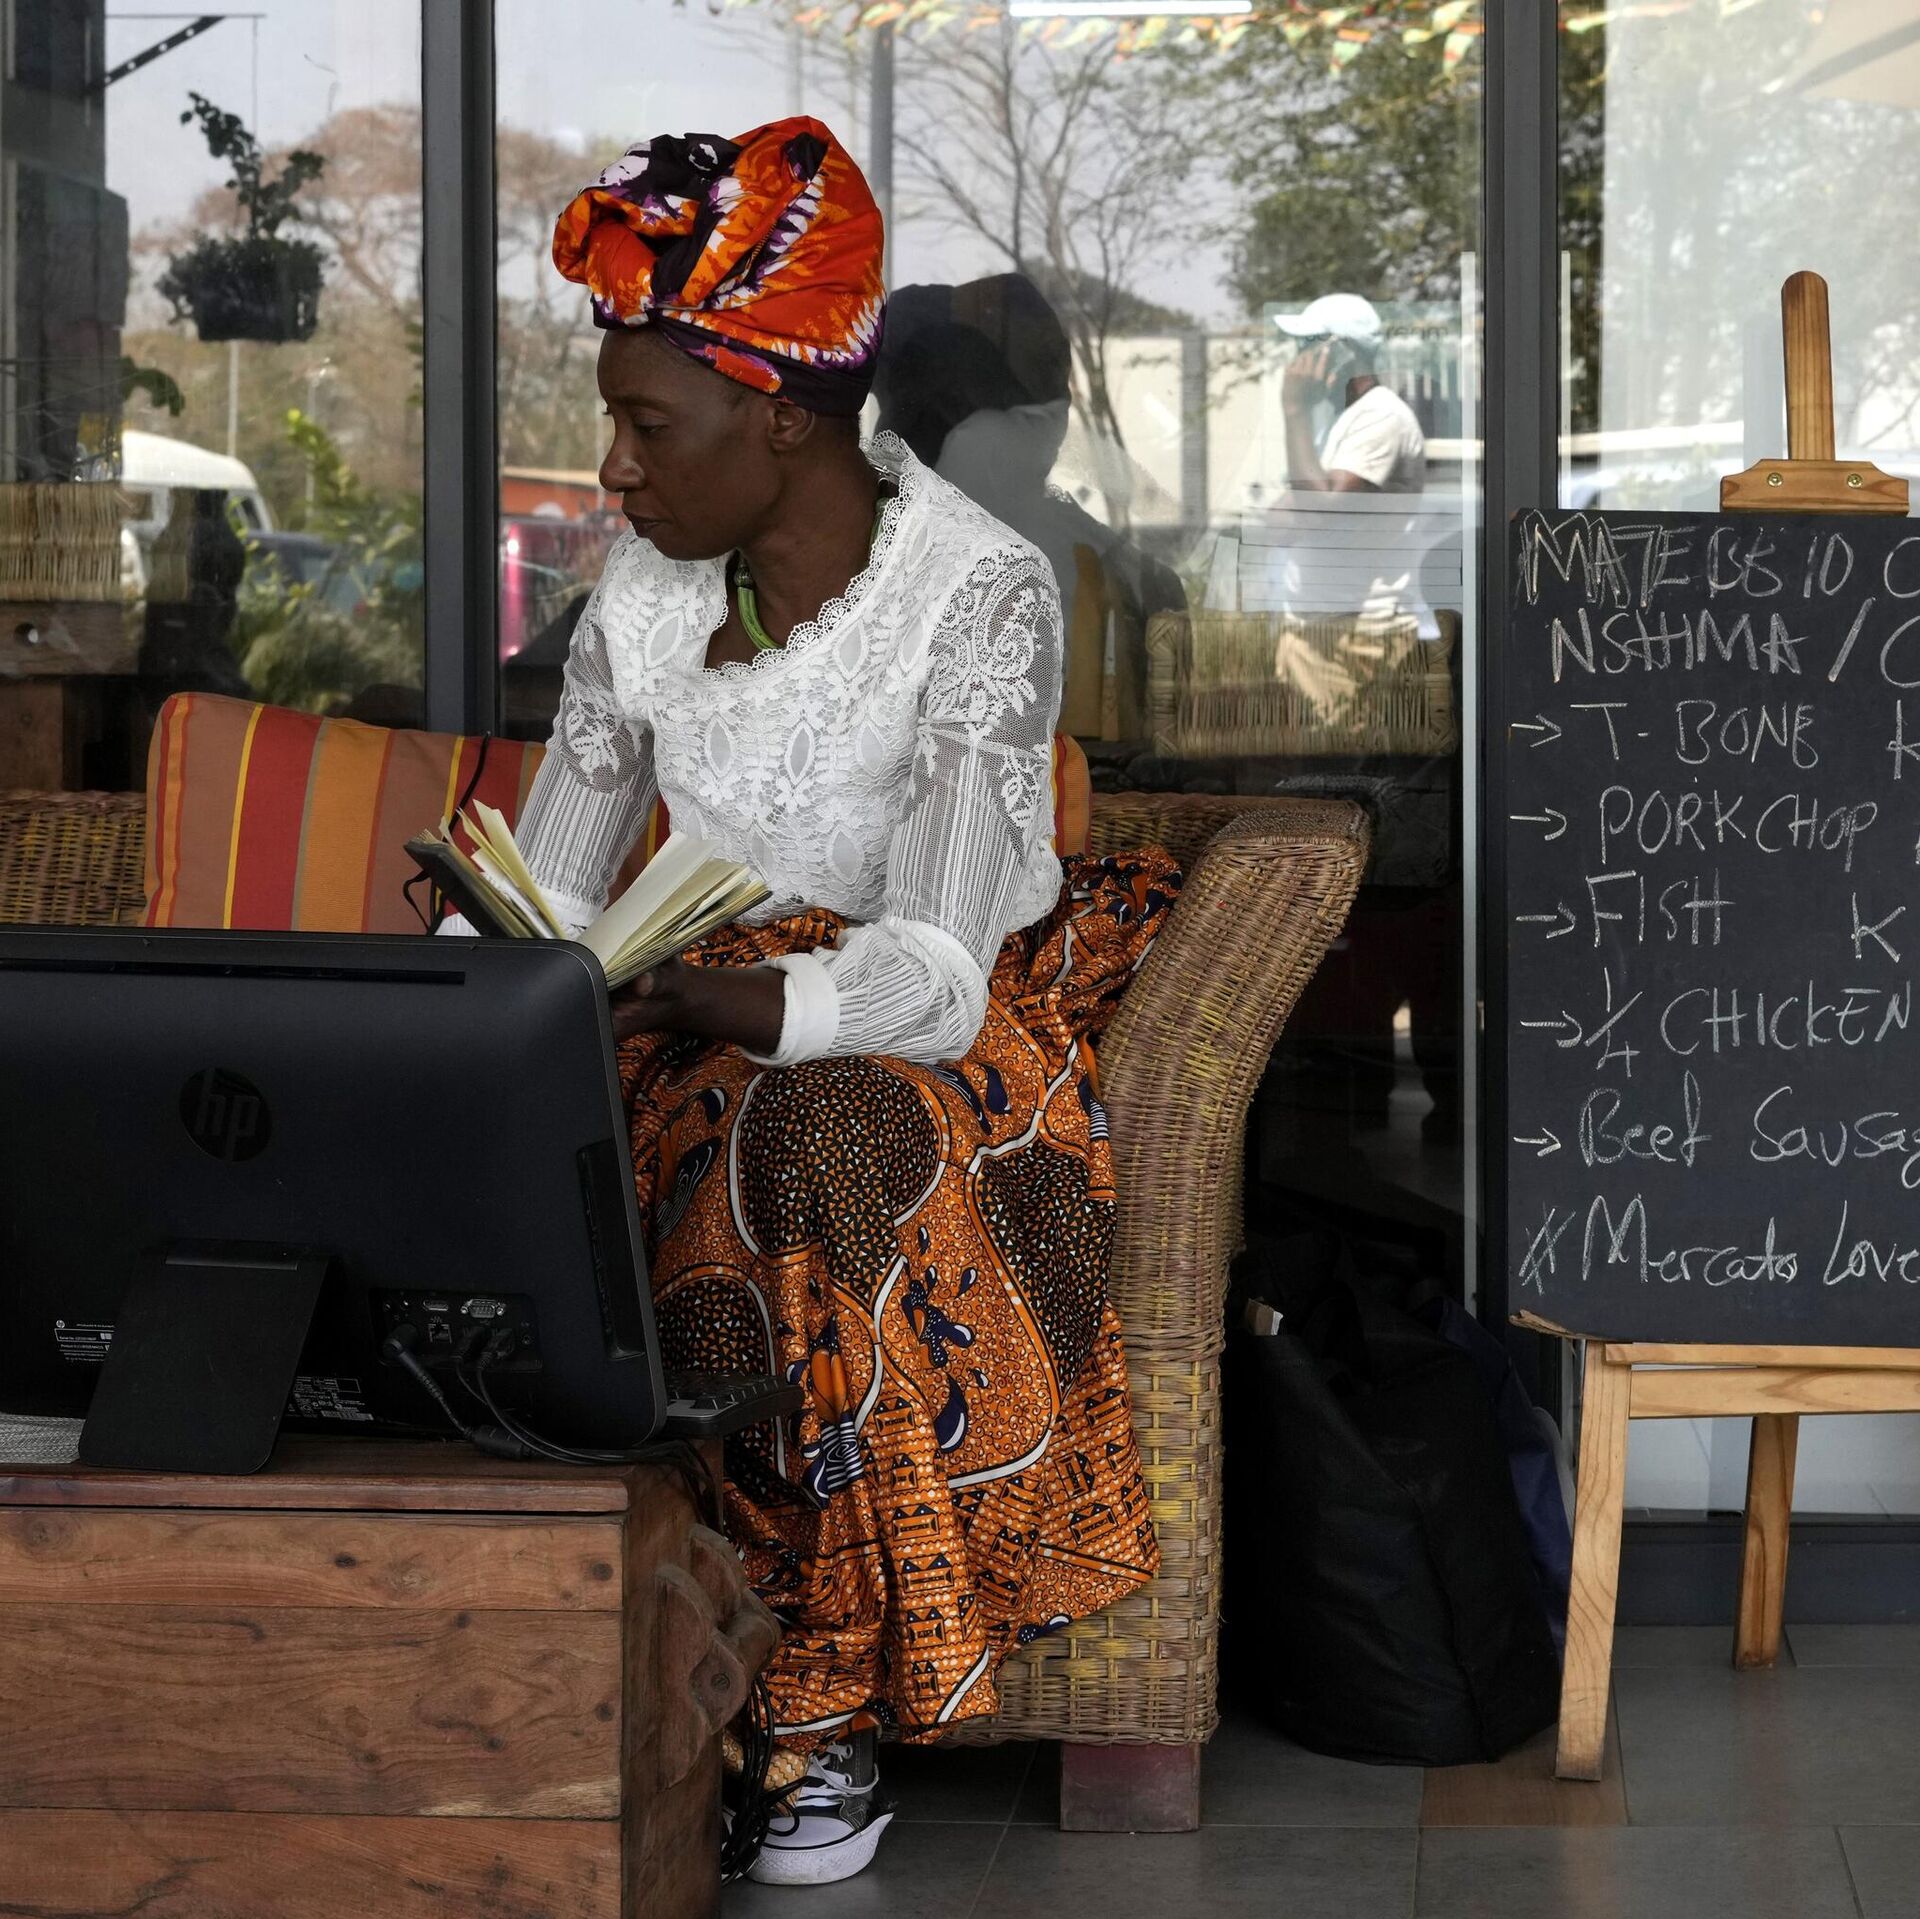 hp
MATEBETO C
NSHIMA / C
→ T-BONE K
→ PORKCHOP
→ FISH K
→ 1/4 CHICKEN
→ Beef Sausag
# Mercato Love